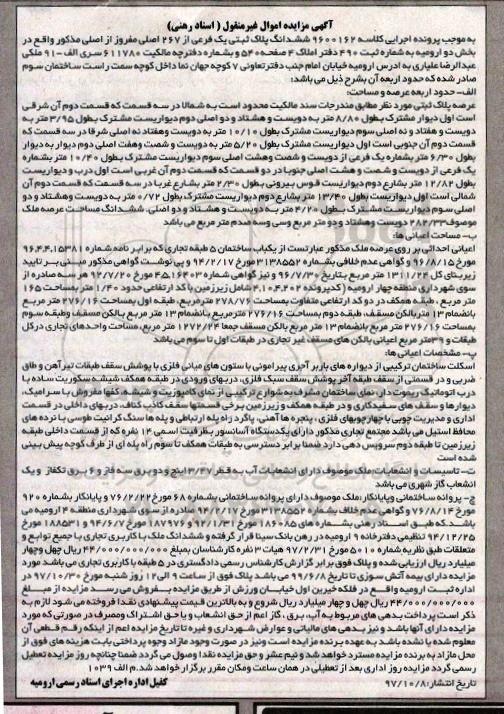 آگهی مزایده اموال غیرمنقول ( اسناد رهنی)
به موجب پرونده اجرایی کلاسه ۹۶۰۰۱۶۲ ششدانگ پلاک ثبتی یک فرعی از ۲۶۷ اصلی مفروز از اصلی مذکور واقع در
بخش دو ارومیه به شماره ثبت ۴۹۰ دفتر املاک ۴ صفحه ۵۴۰ و بشماره دفترچه مالکیت ۶۱۱۷۸۰ سری الف - ۹۱ ملکی
عبدالرضا علیاری به ادرس ارومیه خیابان امام جنب دفتر تعاونی ۷ کوچه جهان نما داخل کوچه سمت راست ساختمان سوم
صادر شده که حدود اربعه آن بشرح ذیل می باشد:
الف- حدود اربعه عرصه و مساحت:
عرصه پلاک ثبتی مورد نظر مطابق مندرجات سند مالکیت محدود است به شمالا در سه قسمت که قسمت دوم آن شرقی
است اول دیوار مشترک بطول ۸/۸۰ متر به دویست و هشتاد و دو اصلی دوم دیواریست مشترک بطول ۳/۹۵ متر به
دویست و هفتاد و نه اصلی سوم دیواریست مشترک بطول ۱۰/۱۰ متر به دویست وهفتاد نه اصلی شرقا در سه قسمت که
قسمت دوم آن جنوبی است اول دیواریست مشترک بطول ۵/۲۰ متر به دویست و شصت وهفت اصلی دوم دیوار به دیوار
بطول ۶/۳۰ متر بشماره یک فرعی از دویست و شصت وهشت اصلی سوم دیواریست مشترک بطول ۱۰/۴۰ متر بشماره
یک فرعی از دویست و شصت و هشت اصلی جنوبا در دو قسمت که قسمت دوم آن غربی است اول درب و دیواریست
بطول ۱۲/۸۲ متر بشارع دوم دیواریست قوس بیرونی بطول ۲/۳۰ متر بشارع غربا در سه قسمت که قسمت دوم آن
شمالی است اول دیواریست بطول ۱۳/۴۰ متر بشارع دوم دیواریست مشترک بطول ۰/۷۲ متر به دویست وهشتاد و دو
اصلی سوم دیواریست مشترک بطول ۴/۲۰ متر به دویست و هشتاد و دو اصلی. ششدانگ مساحت عرصه ملک
موصوف ۲۸۲/۳۳ دویست هشتاد و دو متر مربع وسی وسه صدم متر مربع می باشد
ب- مساحت اعیانی ها:
اعیانی احداثی بر روی عرصه ملک مذکور عبارتست از یکباب ساختمان ۵ طبقه تجاری که برابر نامه شماره ۹۶.۴.۴.۱۵۳۸۱
مورخ ۹۶/۸/۱۵ و گواهی عدم خلافی بشماره ۳۱۳۸۵۵۲ مورخ ۹۴/۲/۱۷ و پی نوشت گواهی مذکور مبنی بر تایید
زیربنای کل ۱۳۱۱/۲۴ متر مربع بتاریخ ۹۶/۷/۳۰ و نیز گواهی شماره ۴.۵.۱۶۴۰۳ مورخ ۹۲/۷/۲۰ هر سه صادره از
سوی شهرداری منطقه چهار ارومیه ( کدپرونده ۴.۱.۰.۴.۲۰۲) شامل زیرزمین با کد ارتفاعی حدود ۱/۴۰ متر بمساحت ۱۶۵
متر مربع ، طبقه همکف در دو کد ارتفاعی متفاوت بمساحت ۲۷۸/۷۶ مترمربع، طبقه اول بمساحت ۲۷۶/۱۶ متر مربع
بانضمام ۱۳ متربالکن مسقف، طبقه دوم بمساحت ۲۷۶/۱۶ مترمربع بانضمام ۱۳ متر مربع بالکن مسقف وطبقه سوم
بمساحت ۲۷۶/۱۶ متر مربع بانضمام ۱۳ متر مربع بالکن مسقف جمعا ۱۲۷۲/۲۴ متر مربع، مساحت واحدهای تجاری در کل
طبقات و ۳۹متر مربع اعیانی بالکن های مسقف غیر تجاری در طبقات اول تا سوم می باشد
پ- مشخصات اعیانی ها:
اسکلت ساختمان ترکیبی از دیواره های باربر آجری پیرامونی با ستون های میانی فلزی با پوشش سقف طبقات تیرآهن و طاق
ضربی و در قسمتی از سقف طبقه آخر پوشش سقف سبک فلزی، دربهای ورودی در طبقه همکف شیشه سکوریت ساده با
درب اتوماتیک ریموت دار، نمای ساختمان مشرف به شوارع ترکیبی از نمای کامپوزیت و شیشه، کفها مفروش با سرامیک،
دیوارها و سقف های سفیدکاری و در طبقه همکف و زیرزمین برخی قسمتها سقف کاذب کناف، دربهای داخلی در قسمت
اداری و مدیریت چوبی با چهارچوبهای فلزی ، پنجره ها آهنی، پاگرد راه پله ارتباطی و پله ها سنگ گرانیت طوسی با نرده های
محافظ استیل می باشد مجتمع تجاری مذکور دارای یکدستگاه آسانسور بظرفیت اسمی ۱۴ نفره که از قسمت داخلی طبقه
زیرزمین تا طبقه دوم سرویس دهی دارد ضمنا برابر دسترسی به طبقات همکف تا سوم راه پله ای از طرف کوچه پیش بینی
شده است
ت- تاسیسات و انشعابات:ملک موصوف دارای انشعابات آب به قطر ۳/۴۷اینچ و دو برق سه فاز و ۶ برق تکفاز و یک
انشعاب گاز شهری می باشد
چ- پروانه ساختمانی وپایانکار:ملک موصوف دارای پروانه ساختمانی بشماره ۶۸ مورخ۷۶/۲/۲۲ و پایانکار بشماره ۹۲۰
مورخ ۷۶/۸/۱۴ و گواهی عدم خلاف بشماره ۳۱۳۸۵۵۲ مورخ ۹۴/۲/۱۷ صادره از سوی شهرداری منطقه ۴ ارومیه می
باشد.که طبق اسناد رهنی بشماره های ۱۸۶۰۸۵ مورخ ۹۲/۱/۳۱ و ۱۸۷۹۷۶ مورخ ۹۴/۶/۷ و ۱۸۸۵۳۱ مورخ
۹۴/۱۲/۲۵ تنظیمی دفترخانه ۹ ارومیه در رهن بانک سینا قرار گرفته و ششدانگ ملک با کاربری تجاری با جمیع توابع و
متعلقات طبق نظریه شماره ۵۰۱۰ مورخ ۹۷/۲/۳۱ هیات ۳ نفره کارشناسان بمبلغ ۴۴/۰۰۰/۰۰۰/۰۰۰ ریال چهل وچهار
میلیارد ریال ارزیابی شده و پلاک فوق برابر گزارش کارشناس رسمی دادگستری در ۵ طبقه با کاربری تجاری می باشد مورد
مزایده دارای بیمه آتش سوزی تا تاریخ ۹۹/۶/۸ می باشد پلاک فوق از ساعت ۹ الی ۱۲ روز شنبه مورخ ۹۷/۱۰/۳۰ در
اداره ثبت ارومیه واقع در فلکه خیرین اول خیابان ورزش از طریق مزایده بفروش می رسد مزایده از مبلغ
۴۴/۰۰۰/۰۰۰/۰۰۰ ریال چهل و چهار میلیارد ریال شروع و به بالاترین قیمت پیشنهادی نقدا فروخته می شود لازم به
ذکر است پرداخت بدهی های مربوط به آب، برق ، گاز اعم از حق انشعاب و یا حق اشتراک ومصرف در صورتی که مورد
مزایده دارای آنها باشد و نیز بدهی های مالیاتی و عوارض شهرداری و غیره تا تاریخ مزایده اعم از اینکه رقم قطعی آن
معلوم شده یا نشده باشد به عهده برنده مزایده است ونیز در صورت وجود مازاد وجوه پرداختی بابت هزینه های فوق از
محل مازاد به برنده مزایده مسترد خواهد شد و نیم عشر و حق مزایده نقدا وصول می گردد ضمنا چنانچه روز مزایده تعطیل
رسمی گردد مزایده روز اداری بعد از تعطیلی در همان ساعت ومکان مقرر برگزار خواهد شد.م الف ۱۰۳۹
تاریخ انتشار: ۹۷/۱۰/۸ کفیل اداره اجرای اسناد رسمی ارومیه